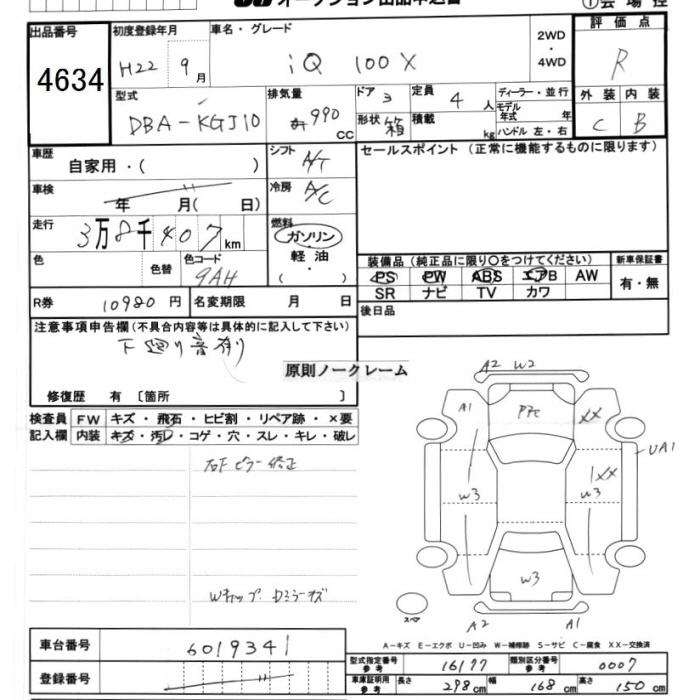 出品番号
4634
初度登録年月
H22 9月
車名・グレード
iQ 100X
2WD
・
4WD
評価点
R
外装 内装
C B
型式
DBA-KGJ10
排気量
990
CC
ドア 3
形状 箱
定員 4 人
積載 kg
ディーラー・並行
モデル年式 年
ハンドル 左・右
車歴
自家用・( )
シフト A/T
セールスポイント (正常に機能するものに限ります)
車検
年 月( 日)
冷房 A/C
走行
3万8千407km
燃料
ガソリン
軽油
( )
色
色替
色コード
9AH
装備品 (純正品に限り○をつけてください)
PS PW ABS エアB AW
SR ナビ TV カワ
新車保証書
有・無
R券
10980円
名変期限 月 日
後日品
注意事項申告欄(不具合内容等は具体的に記入して下さい)
下廻り音有り
原則ノークレーム
修復歴 有 〔箇所 〕
検査員
記入欄
FW キズ・飛石・ヒビ割・リペア跡・×要
内装 キズ・汚レ・コゲ・穴・スレ・キレ・破レ
右Fピラー修正
Wキャップ
A2 W2
A1
XX
UA1
1XX
W3
W3
W3
スペア
A2
A1
A-キズ E-エクボ U-凹み W-補修跡 S-サビ C-腐食 XX-交換済
車台番号
6019341
登録番号
型式指定番号
参考
16177
類別区分番号
参考
0007
車庫証明用
参考
長さ 298cm
幅 168cm
高さ 150cm